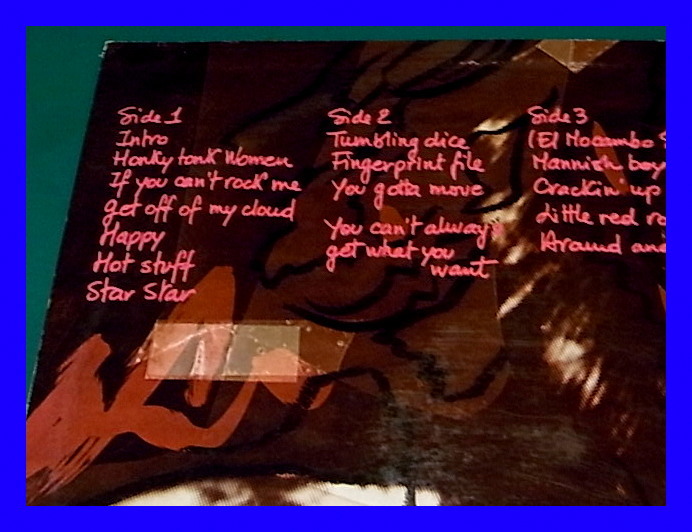 Side 1
Intro
Honky tonk Women
If you can't rock me
get off of my cloud
Happy
Hot stuff
Star Star
Side 2
Tumbling dice
Fingerprint file
You gotta move
You can't always
get what you
want
Side 3
(El Mocambo
Mannish boy
Crackin' up
Little red
Around